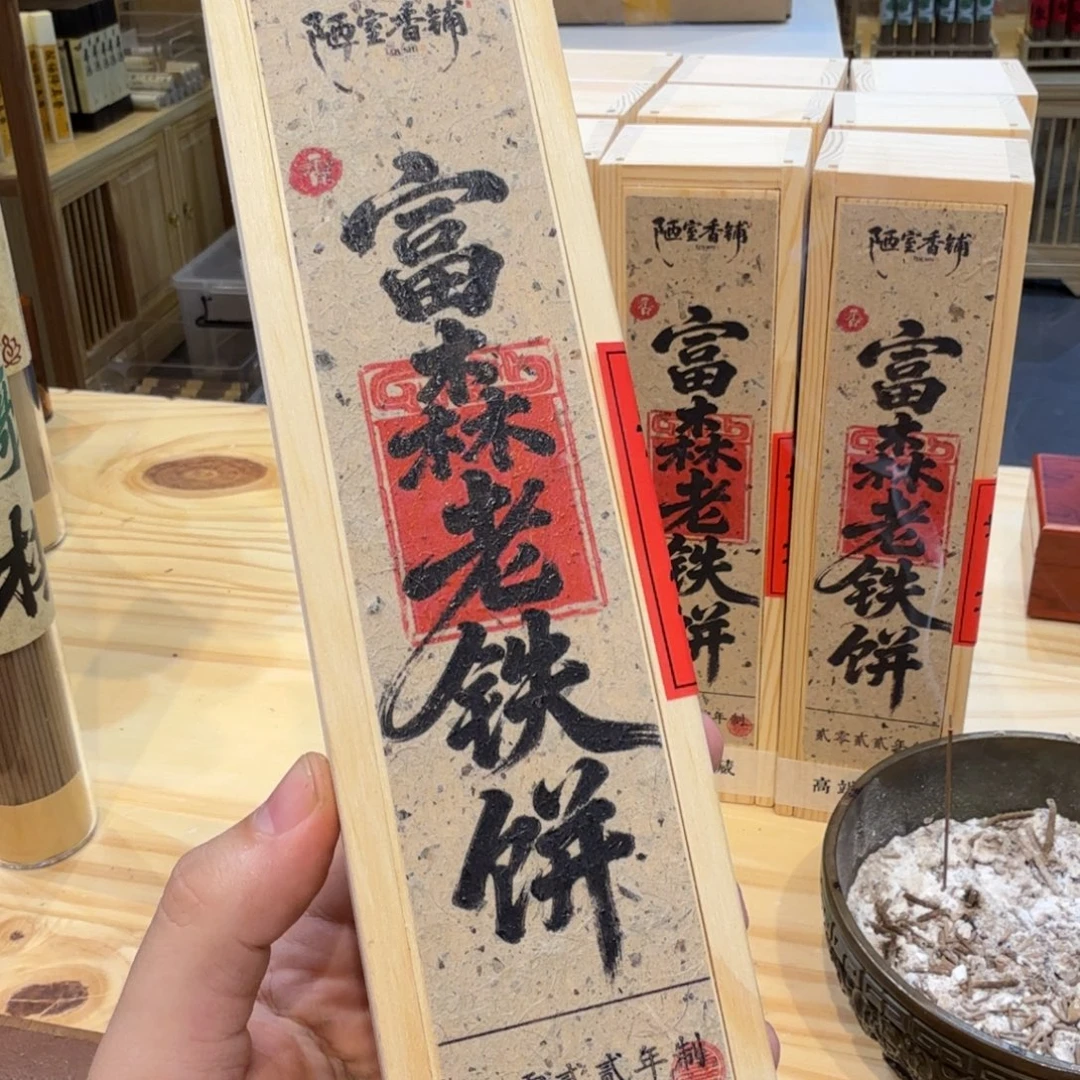 陋室香铺
香
富森老铁饼
贰年制
陋室香铺
香
富森老铁饼
年制
藏
陋室香铺
香
富森老铁饼
贰零贰贰年
高端